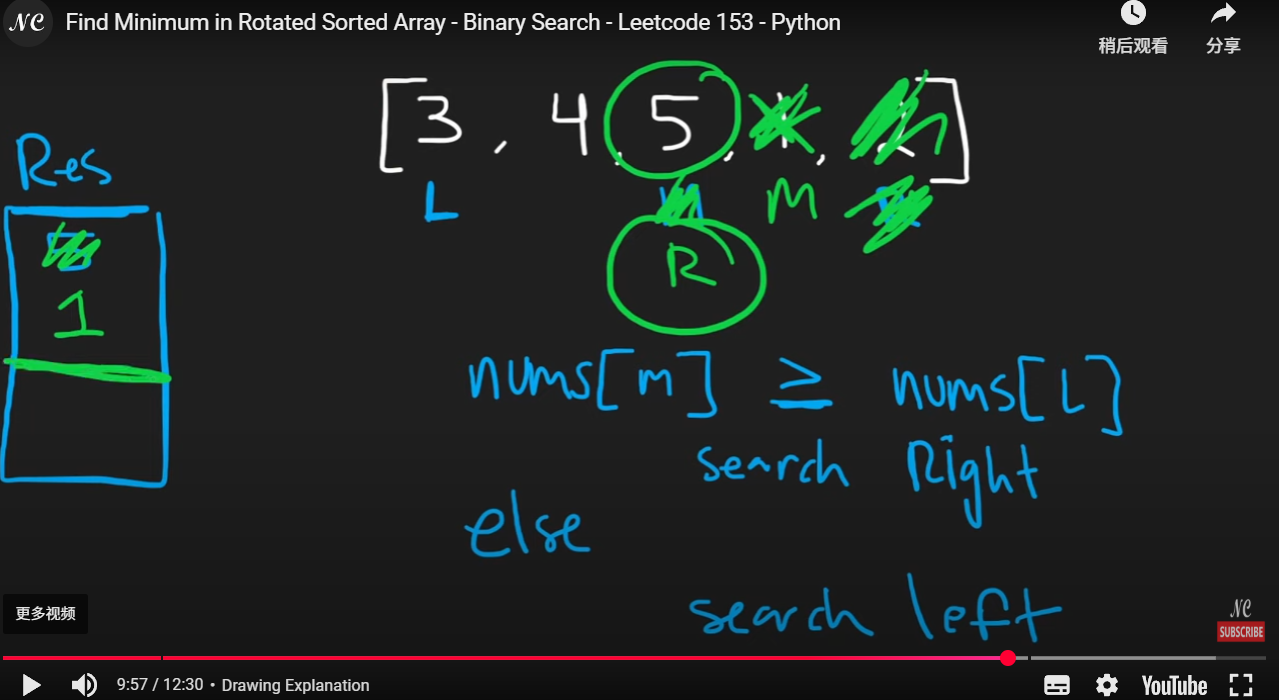 NC Find Minimum in Rotated Sorted Array - Binary Search - Leetcode 153 - Python
稍后观看 分享
[3, 4, 5, 1, 2]
Res
L M M R
R
1
nums[m] ≥ nums[L]
search Right
else
search left
更多视频
NC
SUBSCRIBE
9:57 / 12:30 • Drawing Explanation
YouTube